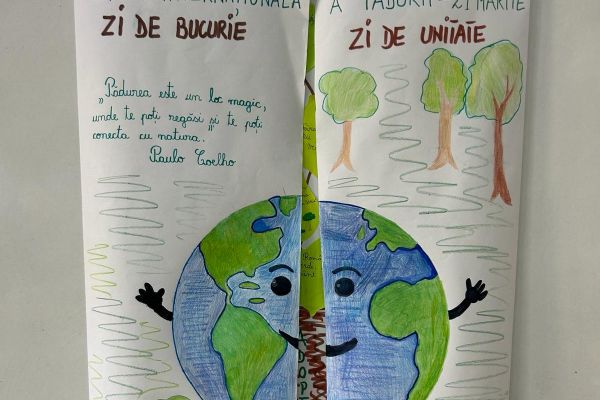 A PĂDURII - 21 MARTIE
ZI DE BUCURIE
ZI DE UNITATE
„Pădurea este un loc magic,
unde te poți regăsi și te poți
conecta cu natura.”
Paulo Coelho